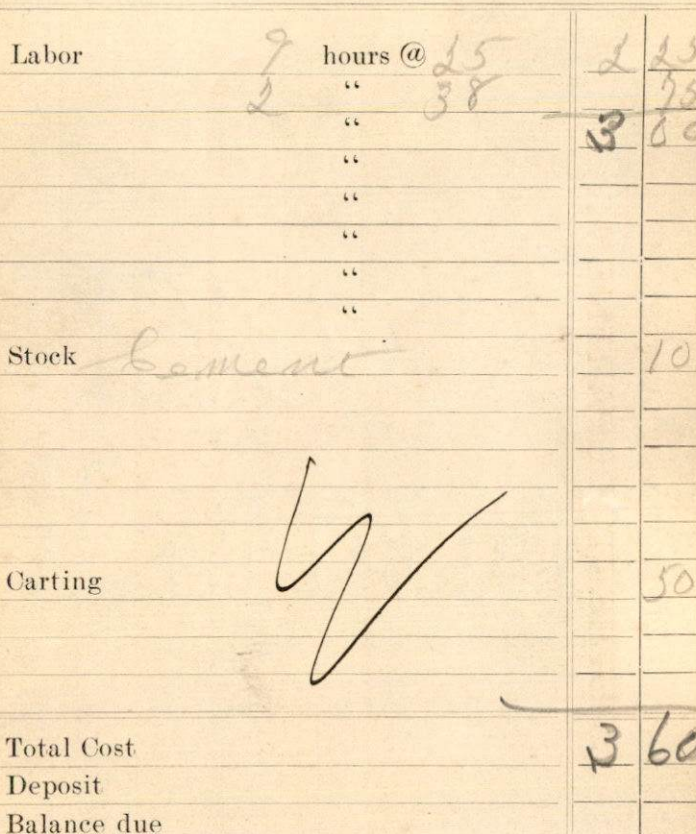 Labor 9 hours @ 25 2 25
2 “ 38 75
“ 3 00
“
“
“
“
“
Stock Cement 10
Carting 50
Total Cost 3 60
Deposit
Balance due